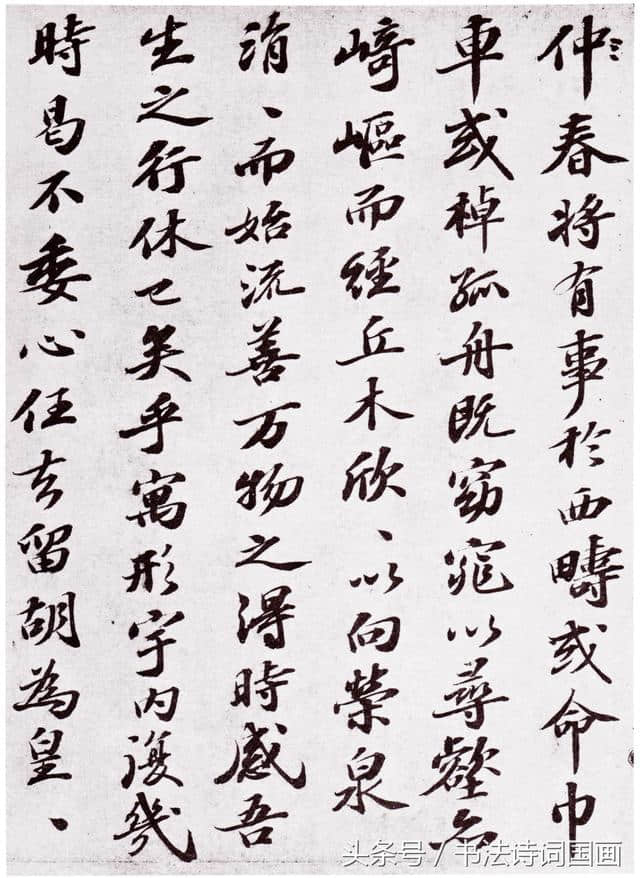 仲春將有事於西疇或命巾
車或棹孤舟既窈窕以尋壑亦
崎嶇而經丘木欣、以向榮泉
涓、而始流善万物之得時感吾
生之行休已矣乎寓形宇内復幾
時曷不委心任去留胡為皇、
头条号/书法诗词国画